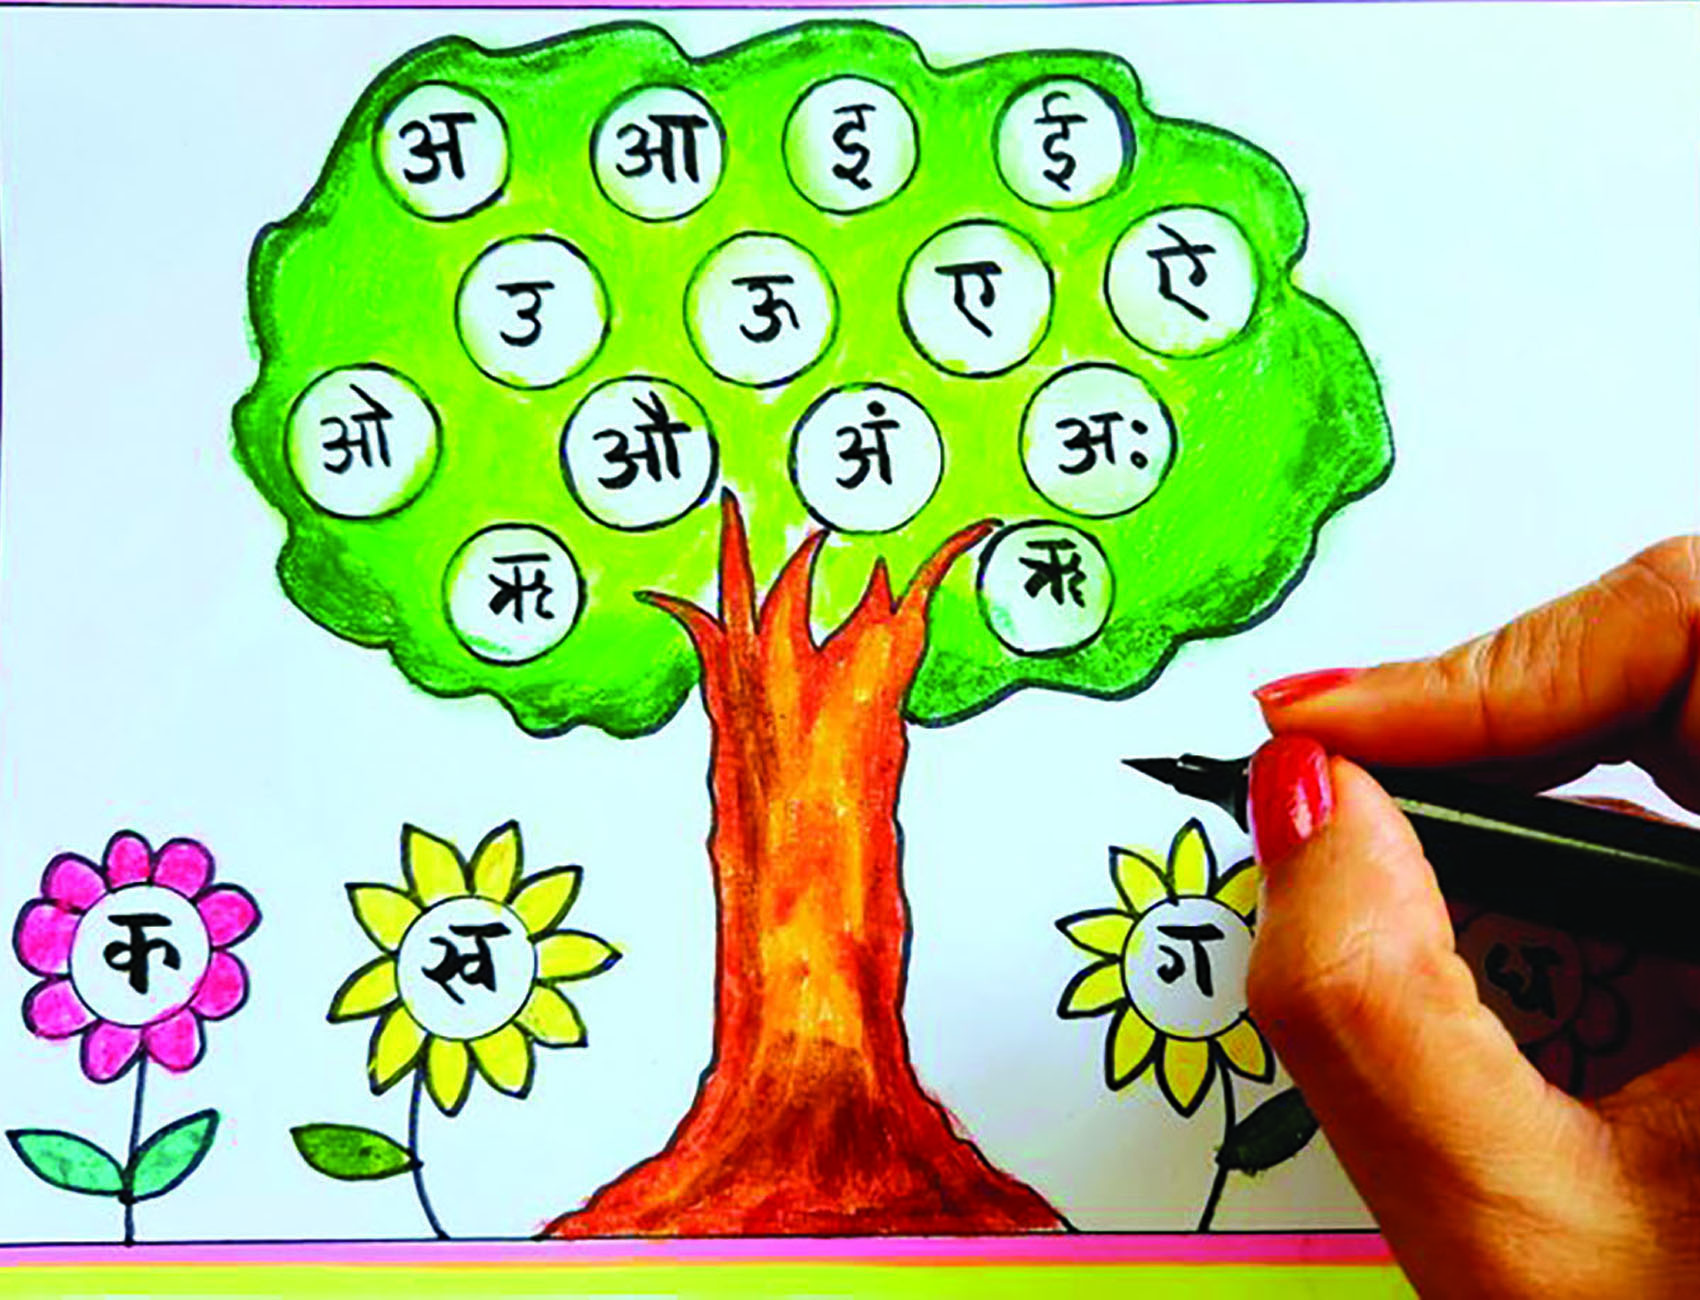 अ आ इ ई
उ ऊ ए ऐ
ओ औ अं अः
ऋ ऋ
क ख ग घ